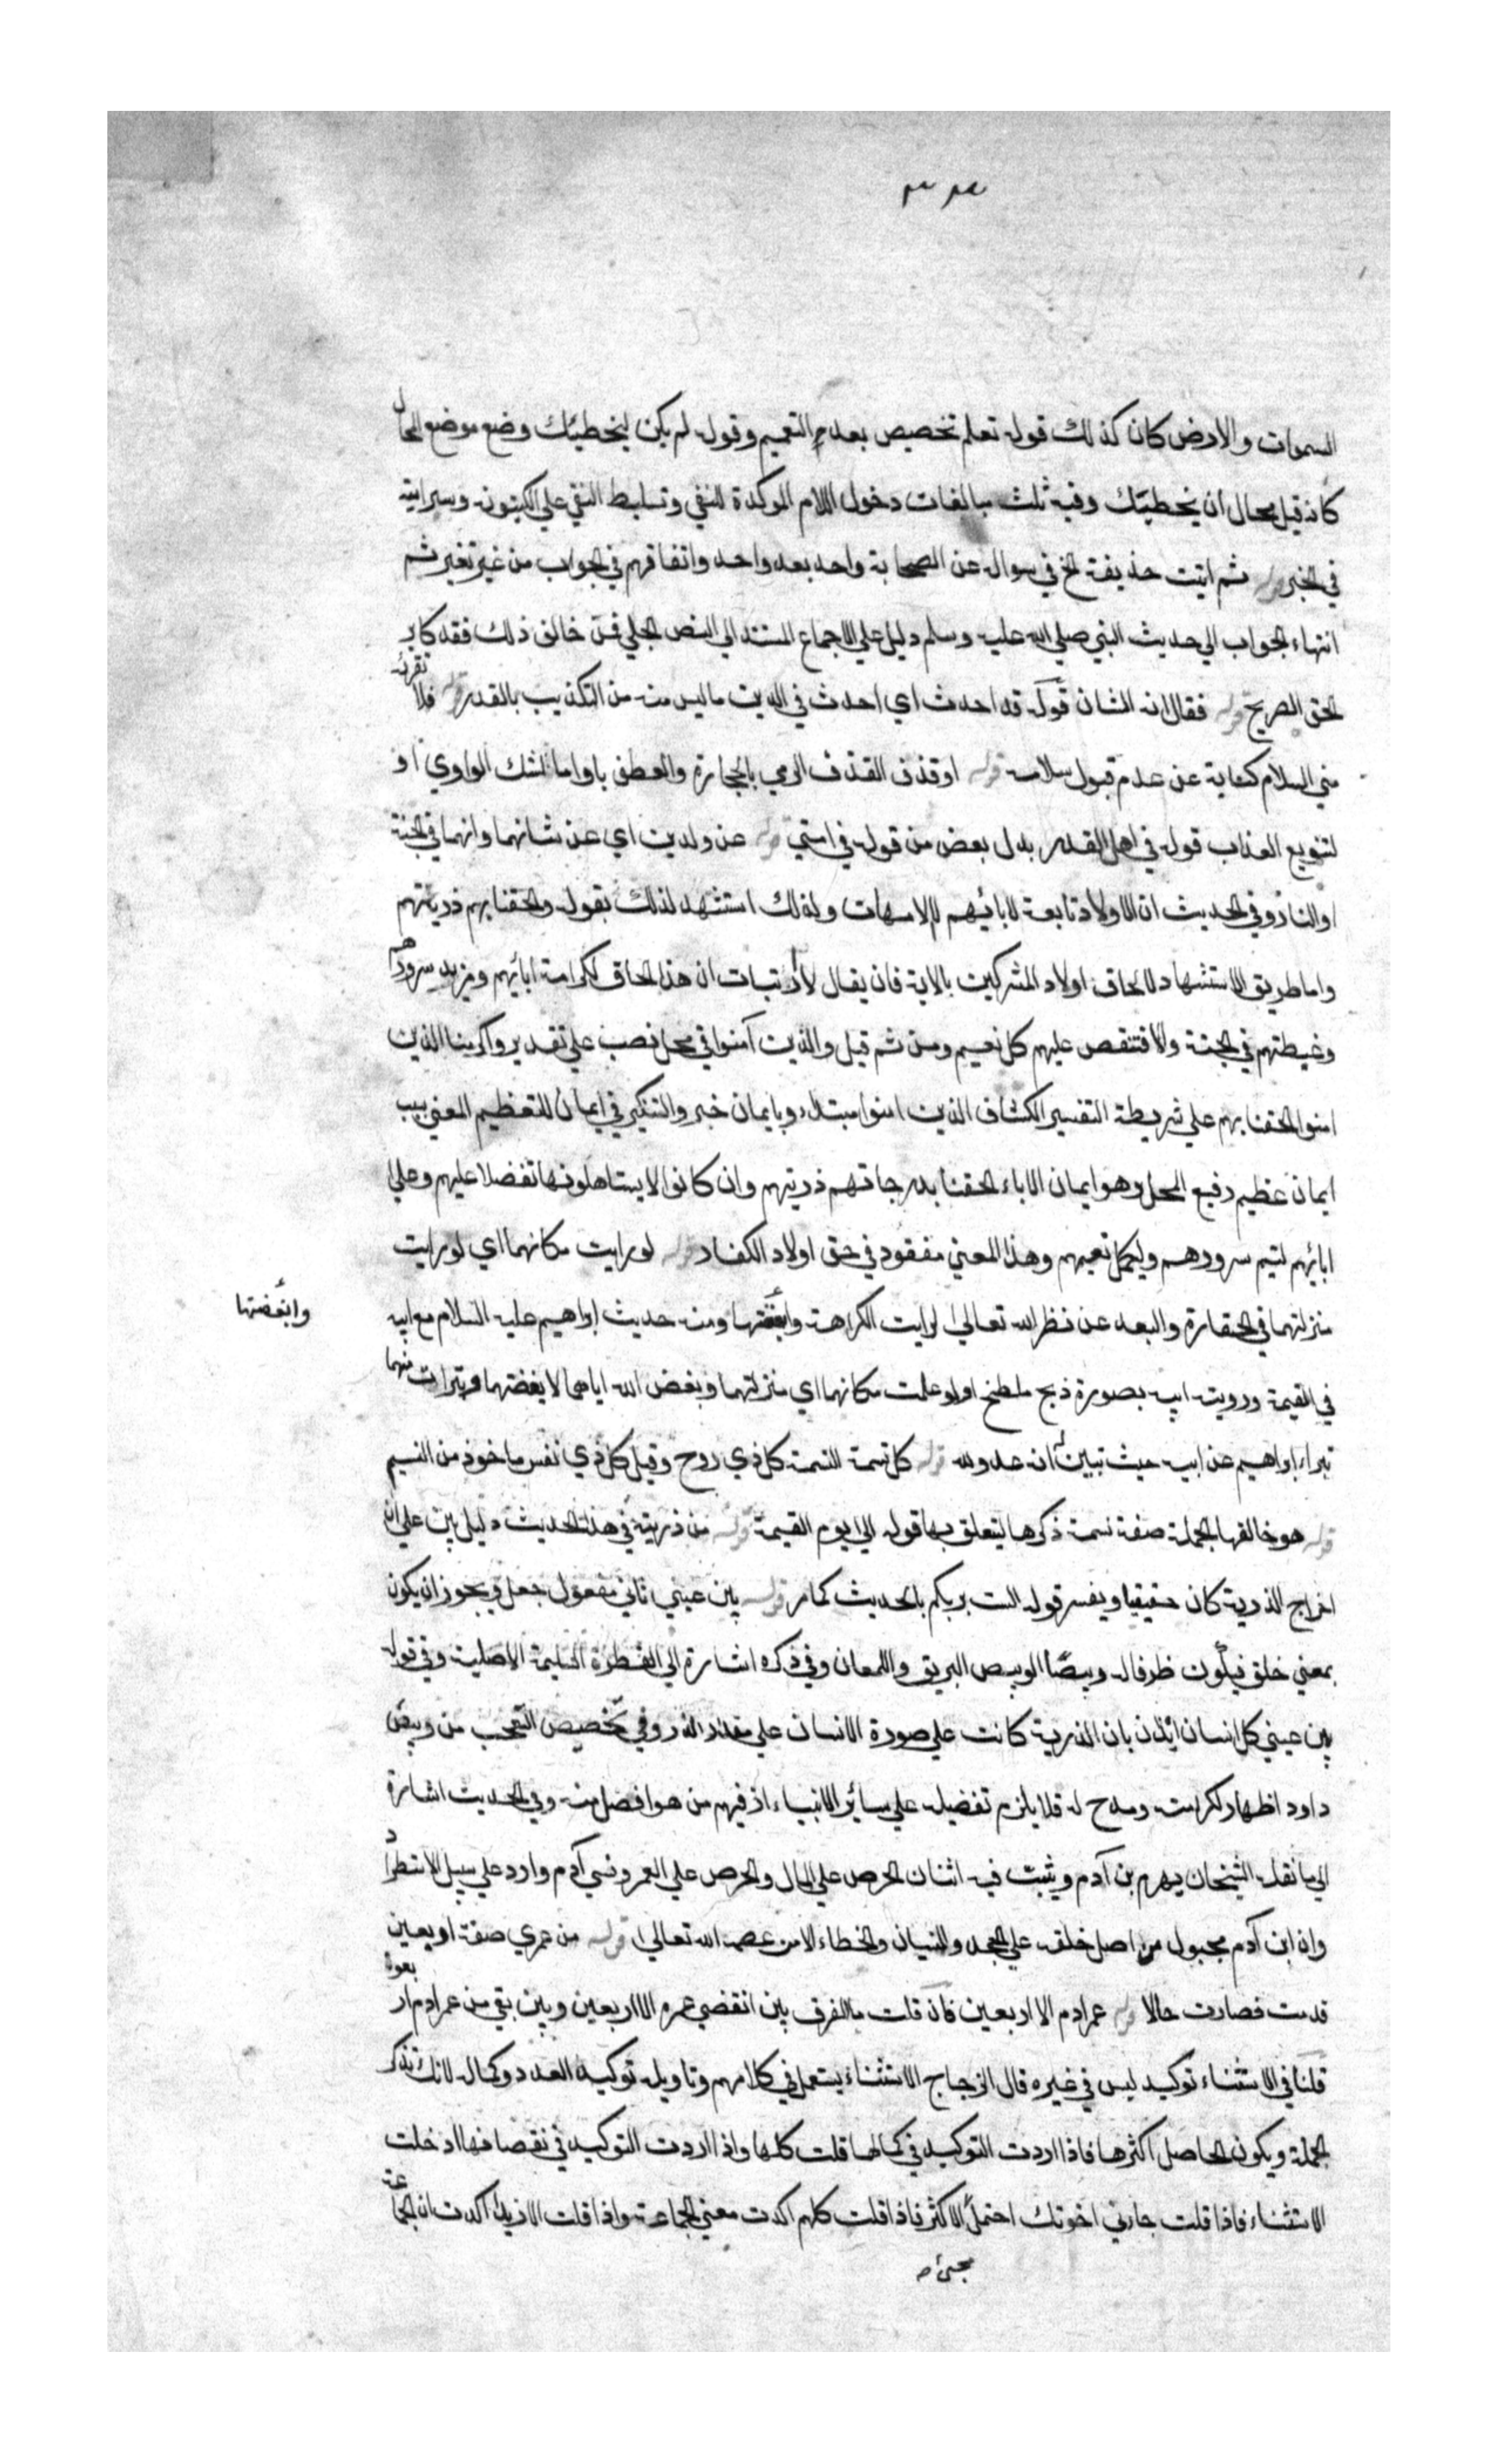 ٣٣
السموات والارض كان كذلك قوله تعلم تخصيص بعد التعميم وقوله لم يكن ليخطيك وضع موضع المحال
كانه قيل محال أن يخطيك وفيه ثلث مبالغات دخول اللام الموكدة للنفي وتسليط النفي علي الكينونه وسرايته
في الخبر قوله ثم اتيت حذيفة الخ في سواله عن الصحابة واحد بعد واحد واتفاقهم في الجواب من غير تغير ثم
انتهاء الجواب الي حديث النبي صلي الله عليه وسلم دليل علي الاجماع المستند الي النص الجلي فمن خالف ذلك فقد كابر
الحق الصريح قوله فقال انه الشان قوله قد احدث اي احدث في الدين ماليس منه من التكذيب بالقدر قوله فلا تقرئه
مني السلام كناية عن عدم قبول سلامه قوله اوقذف القذف الرمي بالحجارة والعطف باو اما لشك الراوي او
لتنويع العذاب قوله في اهل القدر بدل بعض من قوله في امتي قوله عن ولدين اي عن شانهما وانهما في الجنة
او النار وفي الحديث ان الاولاد تابعة لابائهم لا لامهات ولذلك استشهد لذلك بقوله والحقنا بهم ذريتهم
واما طريق الاستشهاد لالحاق اولاد المشركين بالاية فان يقال لا ان هذا الحاق لكرامة ابائهم ومزيد سرورهم
وغبطتهم في الجنة والا فتنقص عليهم كل نعيم ومن ثم قيل والذين آمنوا في محل نصب علي تقدير واكرمنا الذين
امنوا الحقنا بهم علي شريطة التفسير الكشاف الذين امنوا مبتدا وبايمان خبر والتنكير في ايمان للتعظيم المعني بسبب
ايمان عظيم رفيع المحل وهو ايمان الاباء الحقنا بدرجاتهم ذريتهم وان كانوا لا يستاهلونها تفضلا عليهم وعلي
ابائهم ليتم سرورهم وليكمل نعيمهم وهذا المعني مفقود في حق اولاد الكفار قوله لو رايت مكانهما اي لو رايت
منزلتهما في الحقارة والبعد عن نظر الله تعالي لرايت الكراهة وابغضتها ومنه حديث ابراهيم عليه السلام مع ابيه
وابغضتها
في القيمة ورويته ابيه بصورة ذبح ملطخ او لو علمت مكانهما اي منزلتهما وبغض الله اياهما لابغضتهما وتبرات منهما
تبرا ابراهيم عن ابيه حيث تبين انه عدو لله قوله كل نسمة النسمة كل ذي روح وقيل كل ذي نفس ماخوذ من النسيم
قوله هو خالقها الجملة صفة نسمة ذكرها ليتعلق بها قوله الي يوم القيمة قوله من ذريته في هذا الحديث دليل بين علي ان
اخراج الذرية كان حقيقيا ويفسر قوله الست بربكم بالحديث كما مر قوله بين عيني ثاني مفعول جعل ويجوز ان يكون
بمعني خلق فيكون ظرفا له وبيصا الوبيص البريق واللمعان وفي ذكره اشارة الي الفطرة السليمة الاصلية وفي قوله
بين عيني كل انسان ايذان بان الذرية كانت علي صورة الانسان علي مقدار الذر وفي تخصيص التعجب من وبيص
داود اظهار لكرامته ومدح له فلا يلزم تفضيله علي سائر الانبياء اذ فيهم من هو افضل منه وفي الحديث اشارة
الي ما نقله الشيخان يهرم بن آدم ويثبت فيه اثنان الحرص علي المال والحرص علي العمر ونسي آدم وارد علي سبيل الاستطراد
وان ابن آدم مجبول من اصل خلقه علي الجحد والنسيان والخطاء الا من عصمه الله تعالي قوله من عمري صفة اربعين
قدمت فصارت حالا قوله عمر ادم الا اربعين فان قلت ما الفرق بين انقضي عمره الا اربعين وبين بقي من عمر ادم اربعون
قلنا في الاستثناء توكيد ليس في غيره قال الزجاج الاستثناء يستعمل في كلامهم وتاويله توكيد العدد وكماله لانك تذكر
الجملة ويكون الحاصل اكثرها فاذا اردت التوكيد في كمالها قلت كلها واذا اردت التوكيد في نقصانها ادخلت
الاستثناء فاذا قلت جاءني اخوتك احتمل الاكثر فاذا قلت كلهم اكدت معني الجماعة واذا قلت الا زيدا اكدت ان الجماعة